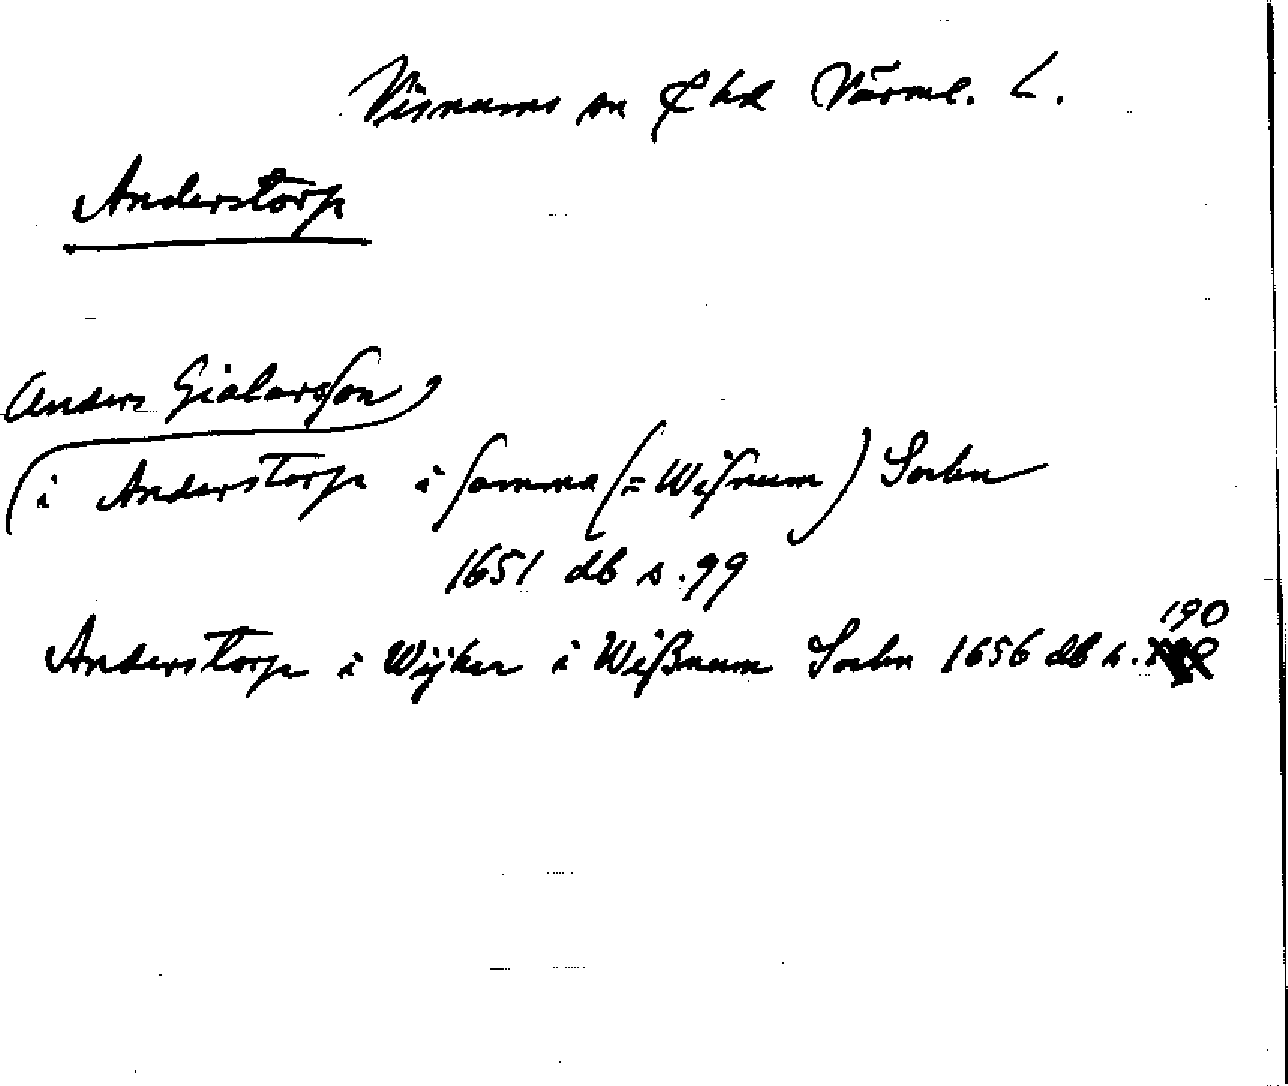 Visnums sn hd Värml. L.
Anderstorp
Anders
i Anderstorp i samma (= Wisnum) Sochn
1651 db s. 99
Anderstorp i Wijker i Wißnum Sochn 1656 db s. 190